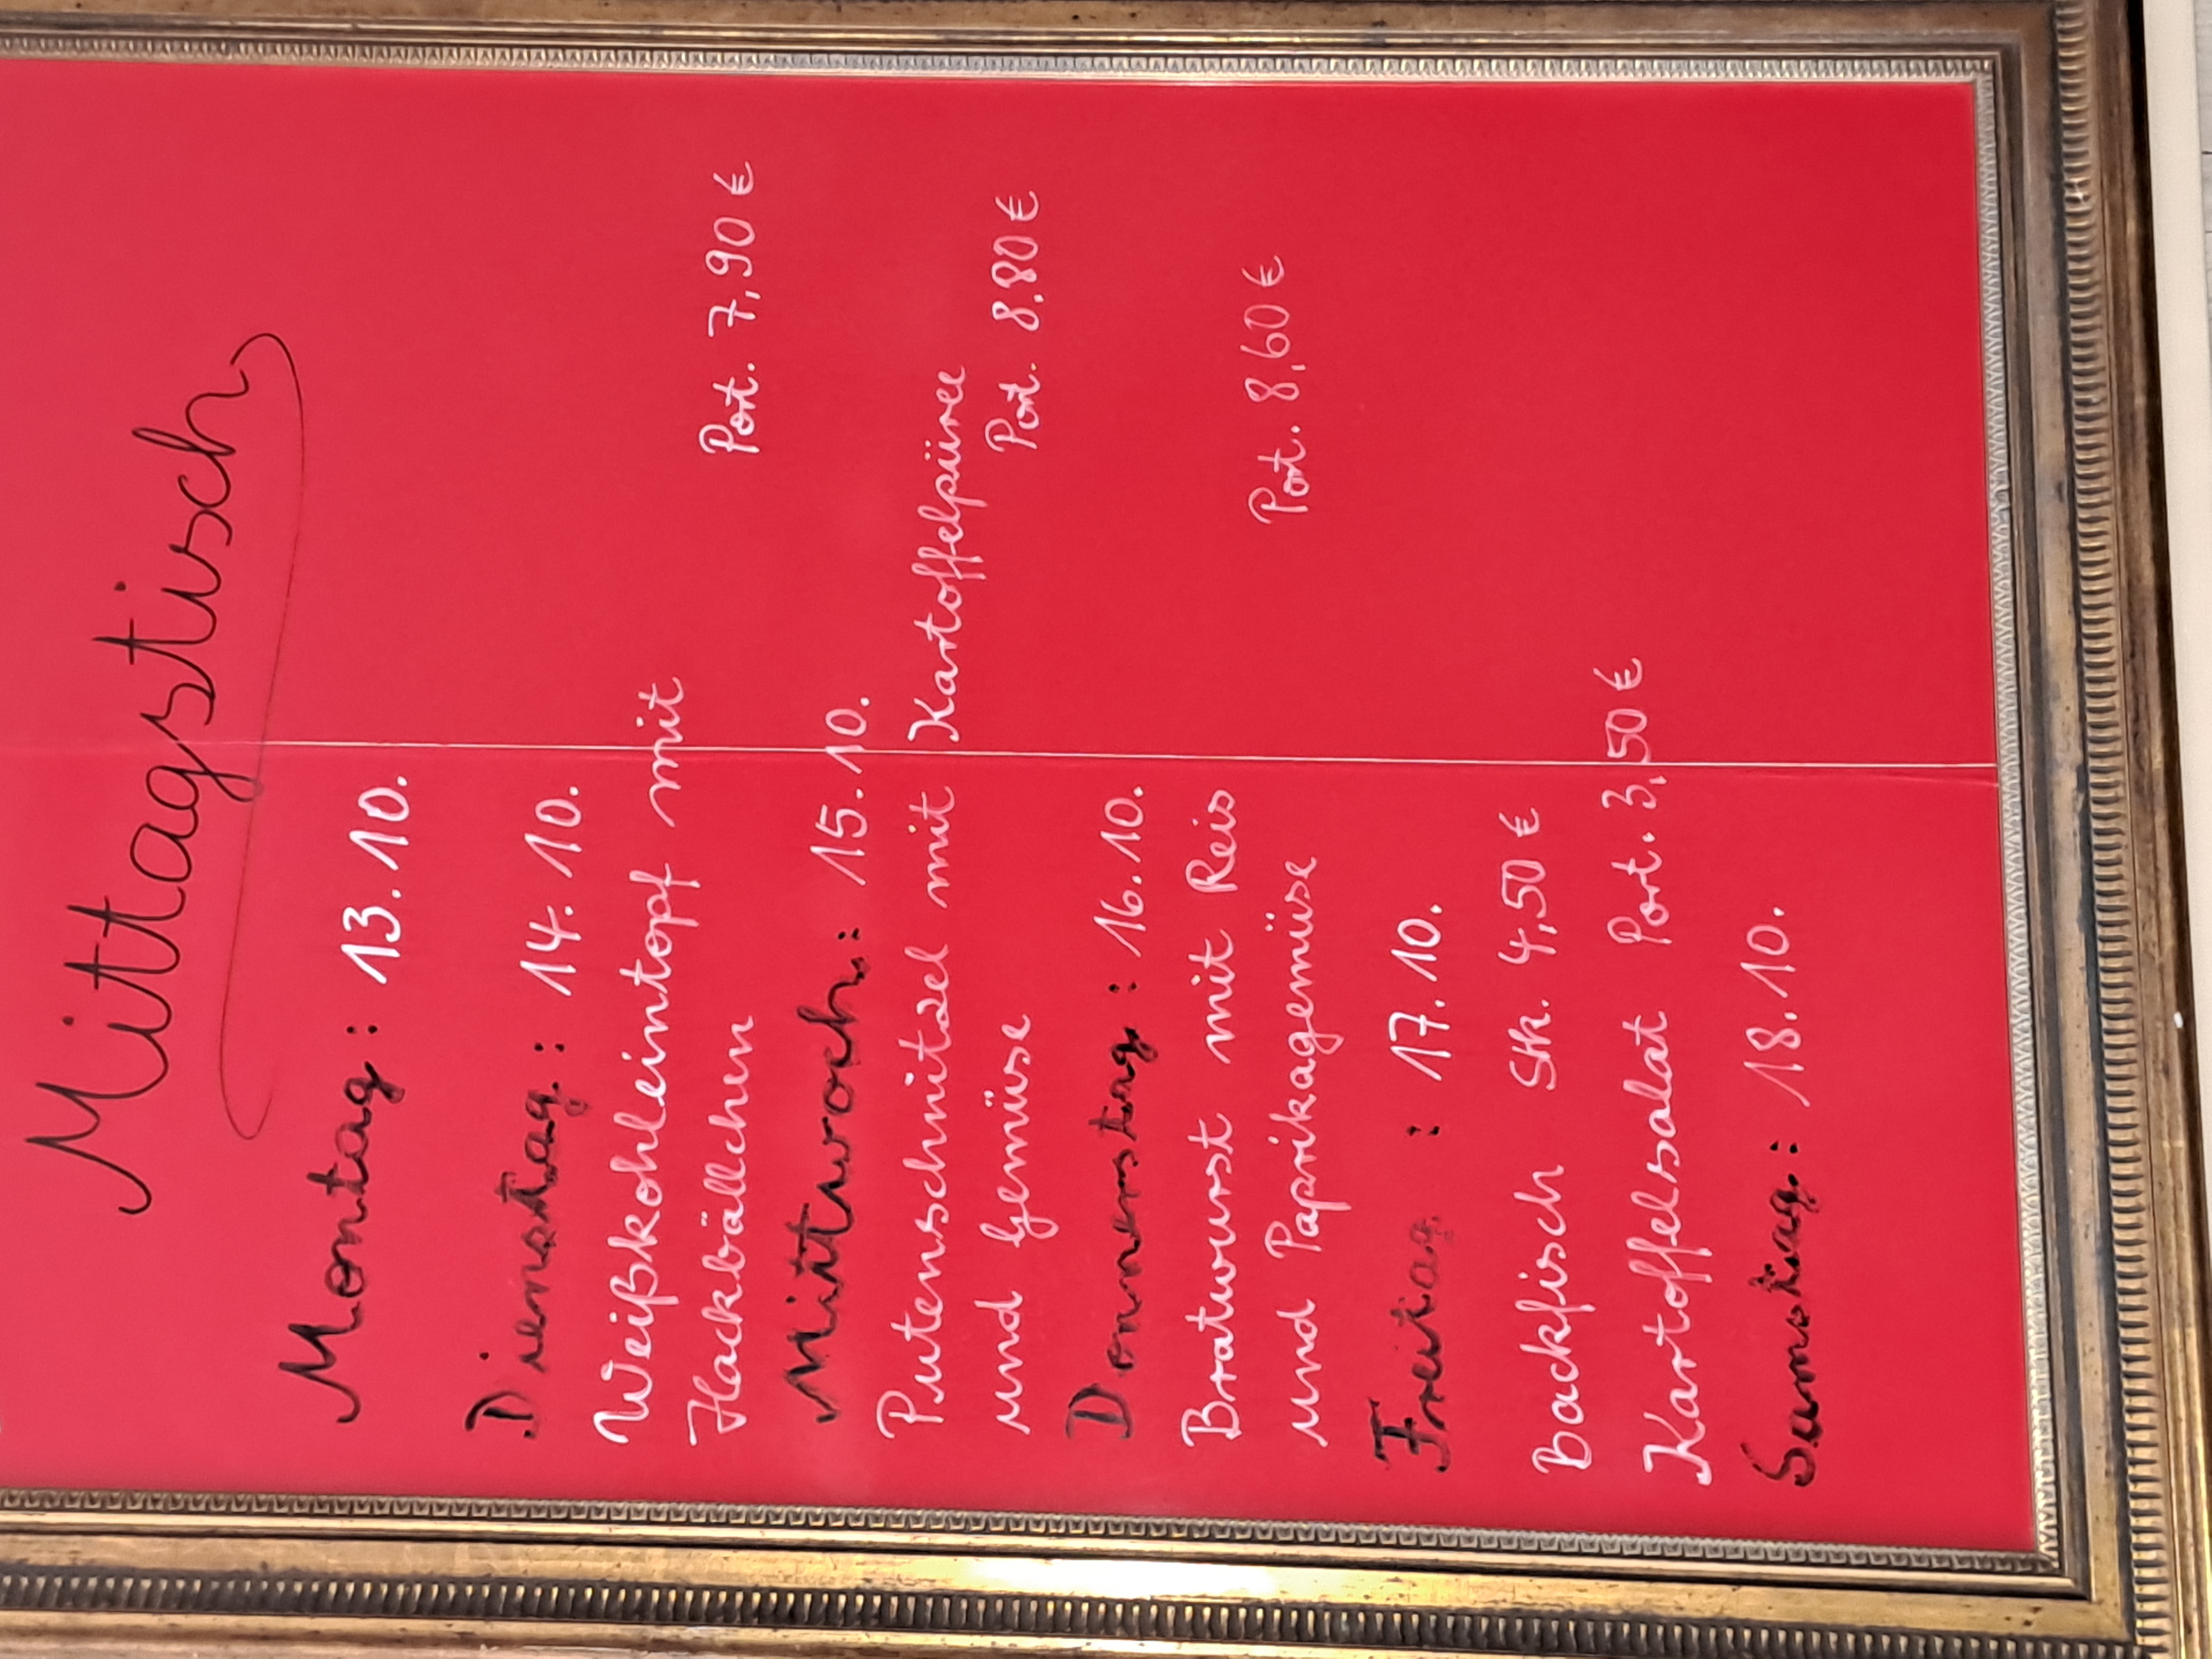 Mittagstisch
Montag : 13.10.
Dienstag : 14.10.
Weißkohleintopf mit
Hackbällchen Port. 7,90 €
Mittwoch : 15.10.
Putenschnitzel mit Kartoffelpüree
und Gemüse Port. 8,80 €
Donnerstag : 16.10.
Bratwurst mit Reis
und Paprikagemüse Port. 8,60 €
Freitag : 17.10.
Backfisch Stk. 4,50 €
Kartoffelsalat Port. 3,50 €
Samstag : 18.10.